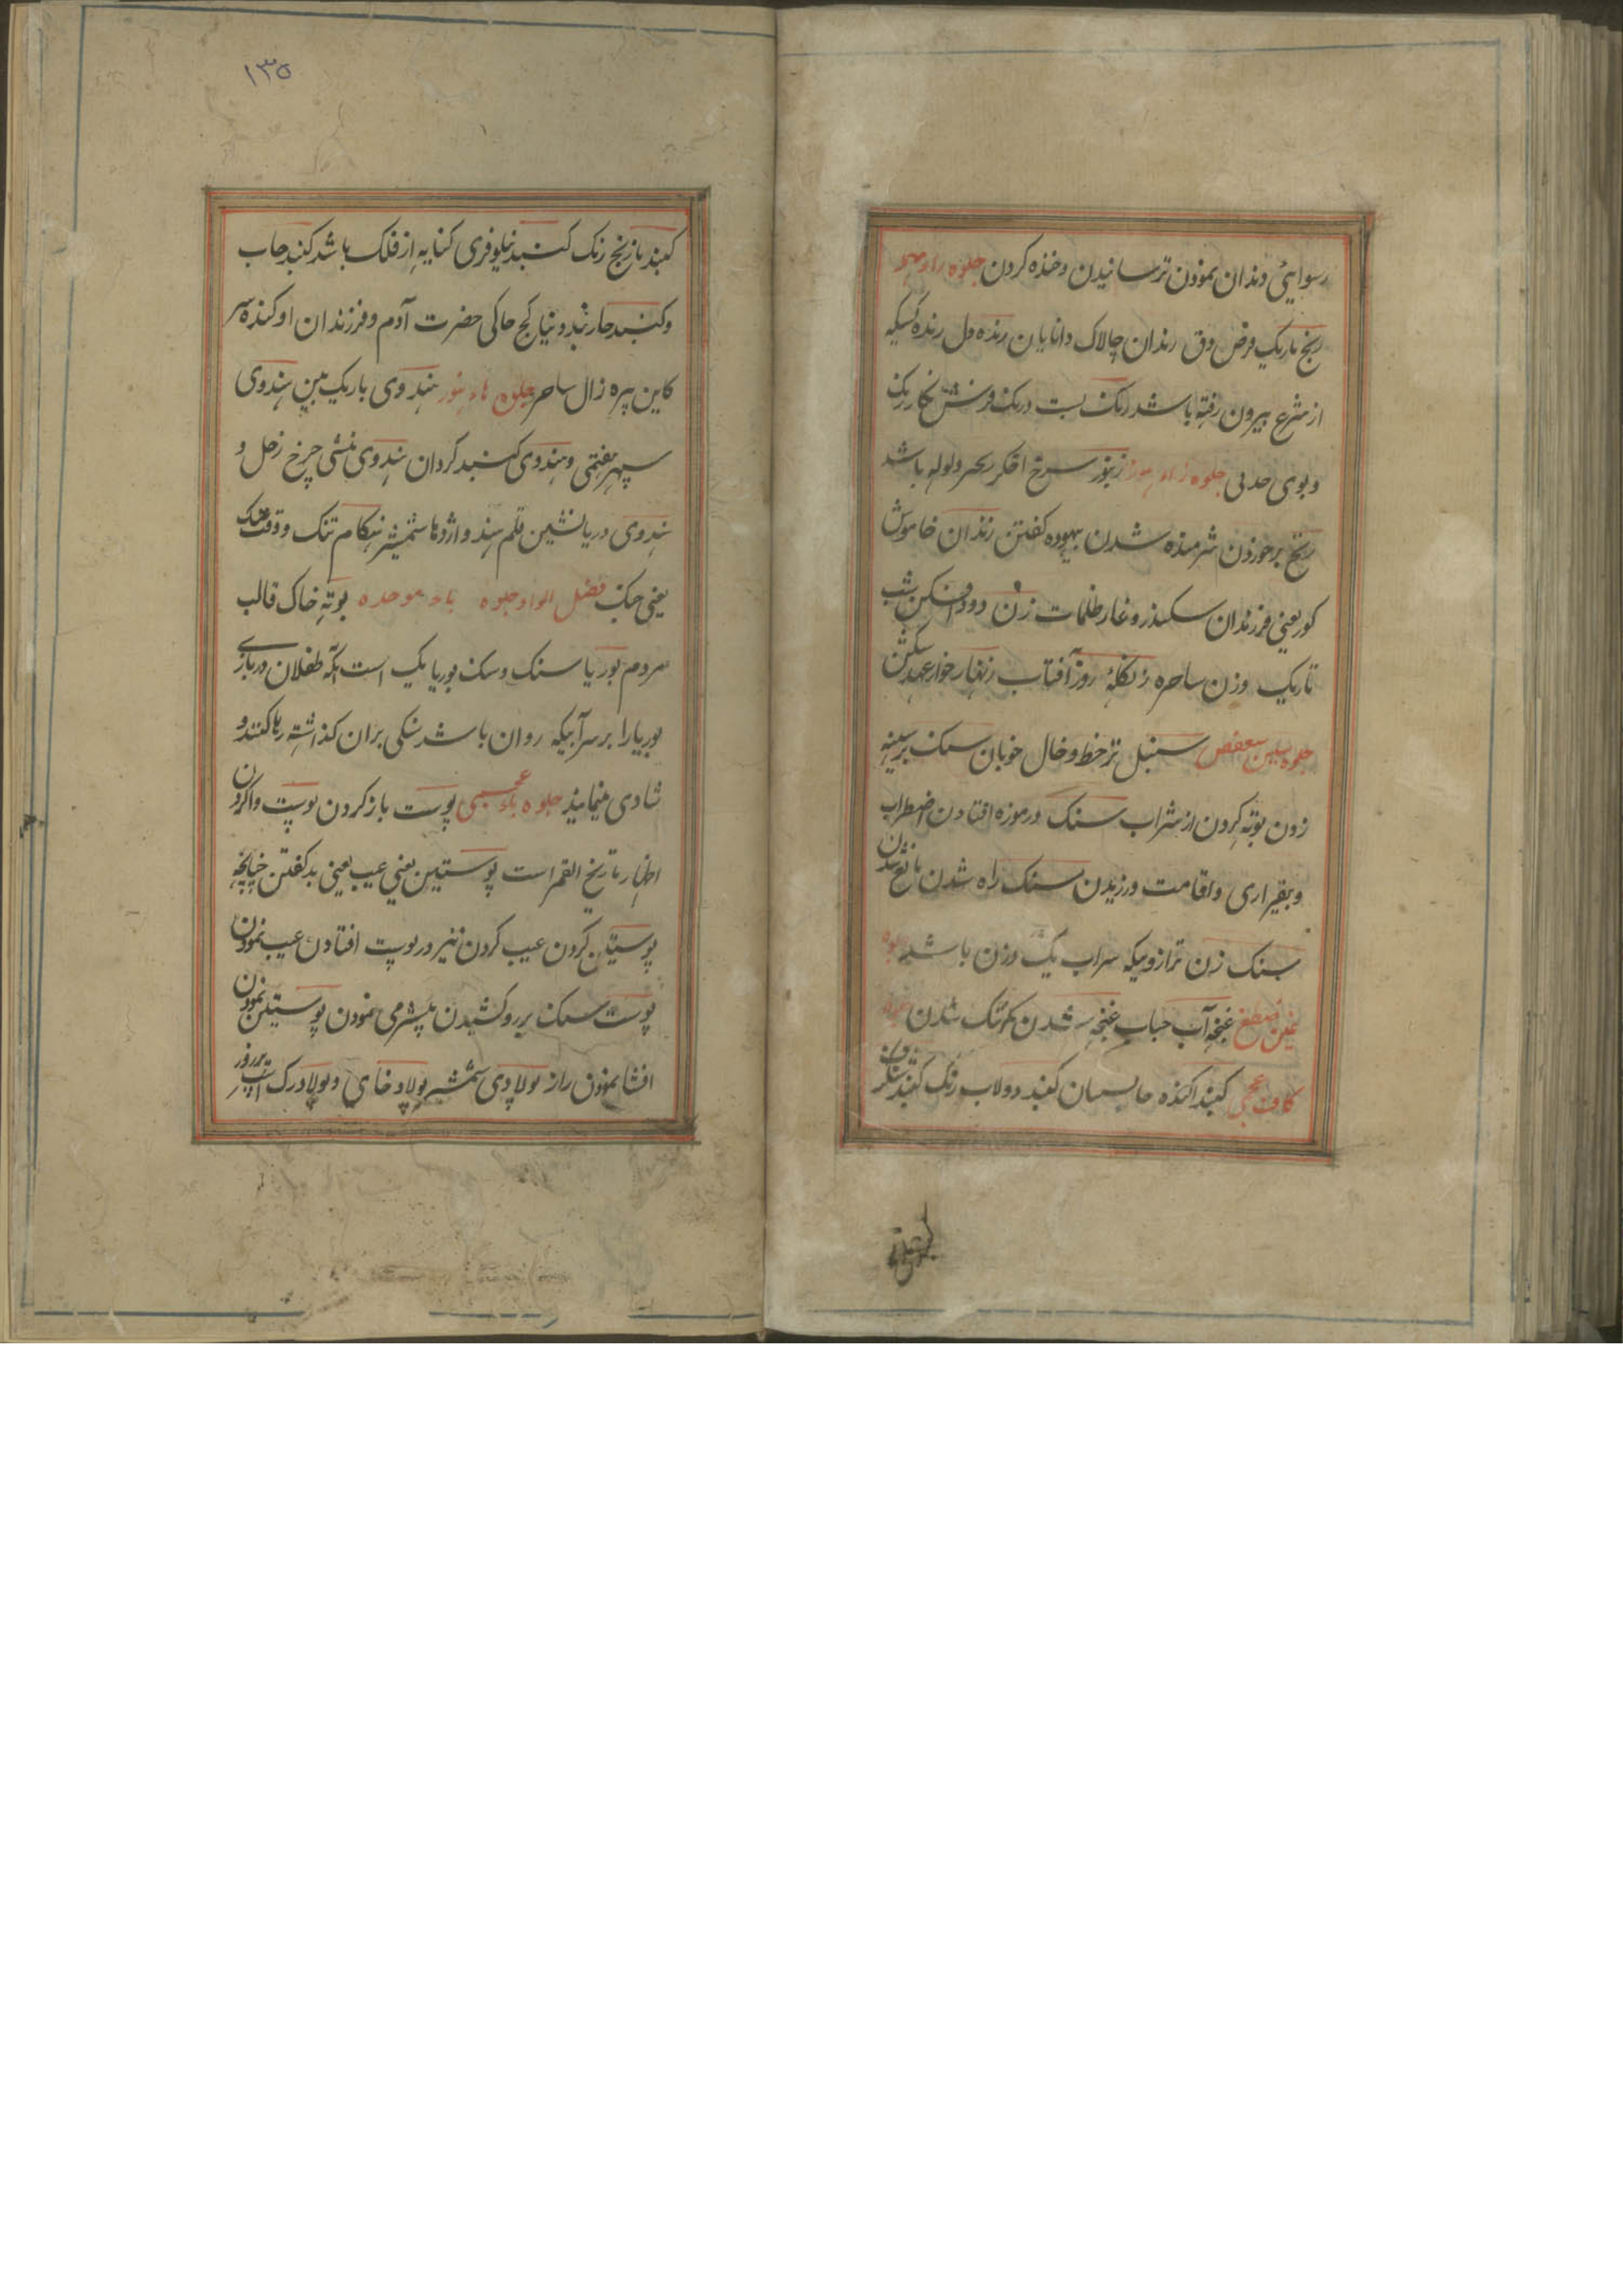 رسوایی دندان نمودن ترسانیدن و خنده کردن جلوه راء مهمله
رنج باریک مرض دق رندان چالاک دانایان رنده دل رنده کسیکه
از شرع بیرون رفته باشد رنک بست رنک
و بوی جلوه زاء هوز زنبور سرخ اخکر ولوله باشد
زنخ بر خوردن شرمنده شدن بیهوده کفتن زندان خاموش
کور یعنی فرزندان سکندر و غار ظلمات زن دود افکن شب
تاریک و زن ساحره زنکله روز آفتاب زنهار خوار عهد شکن
جلوه سین سعفص سنبل تر خط و خال خوبان سنک بر سینه
زدن توبه کردن از شراب سنک در موزه افتادن اضطراب
و بیقراری و اقامت ورزیدن سنک راه شدن مانع شدن
سنک زن ترازوییکه یک وزن باشد جلوه
غین ضظغ غنچه آب حباب غنچه شدن تنک شدن جلوه
کاف عجمی کنبد دولاب رنک کنبد
کنبد نارنج رنک کنبد نیلوفری کنایه از فلک باشد کنبد
و کنبد چار بند دنیا کنج خاکی حضرت آدم و فرزندان او کنده پیر
کاین پیره زال ساحر جلوه هاء هوز هندوی باریک بین هندوی
سپهر هفتمی و هندوی کنبد کردان هندوی منشی چرخ زحل و
هندوی دریا نشین قلم هند و اژدها شمشیر هنکام تنک و وقت تنک
یعنی جنک فصل الواو جلوه باء موحده بوته خاک قالب
مردم بوریا سنک و سنک بوریا یک است آنکه طفلان در بازی
بوریا را بر سر آبیکه روان باشد سنکی بران کذاشته رها کنند و
شادی مینمایند جلوه باء عجمی پوست باز کردن پوست وا کردن
اظهار است پوستین یعنی عیب یعنی بد کفتن چنانچه
پوستین کردن عیب کردن نیز در پوست افتادن عیب نمودن
پوست سنک بر رو کشیدن بیشرمی نمودن پوستین نمودن
افشا نمودن راز پولادی شمشیر پولاد خای و پولاد رک اسپ
۱۳۵